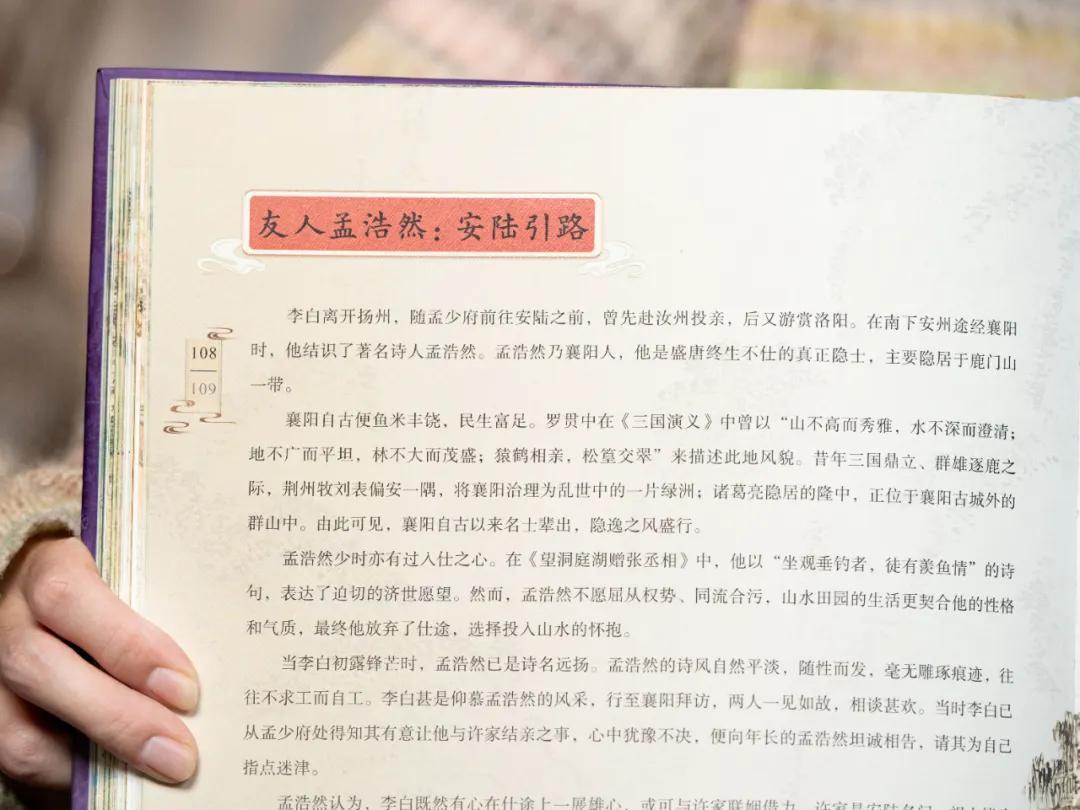 友人孟浩然：安陆引路
李白离开扬州，随孟少府前往安陆之前，曾先赴汝州投亲，后又游赏洛阳。在南下安州途经襄阳
时，他结识了著名诗人孟浩然。孟浩然乃襄阳人，他是盛唐终生不仕的真正隐士，主要隐居于鹿门山
一带。
108
109
襄阳自古便鱼米丰饶，民生富足。罗贯中在《三国演义》中曾以“山不高而秀雅，水不深而澄清；
地不广而平坦，林不大而茂盛；猿鹤相亲，松篁交翠”来描述此地风貌。昔年三国鼎立、群雄逐鹿之
际，荆州牧刘表偏安一隅，将襄阳治理为乱世中的一片绿洲；诸葛亮隐居的隆中，正位于襄阳古城外的
群山中。由此可见，襄阳自古以来名士辈出，隐逸之风盛行。
孟浩然少时亦有过入仕之心。在《望洞庭湖赠张丞相》中，他以“坐观垂钓者，徒有羡鱼情”的诗
句，表达了迫切的济世愿望。然而，孟浩然不愿屈从权势、同流合污，山水田园的生活更契合他的性格
和气质，最终他放弃了仕途，选择投入山水的怀抱。
当李白初露锋芒时，孟浩然已是诗名远扬。孟浩然的诗风自然平淡，随性而发，毫无雕琢痕迹，往
往不求工而自工。李白甚是仰慕孟浩然的风采，行至襄阳拜访，两人一见如故，相谈甚欢。当时李白已
从孟少府处得知其有意让他与许家结亲之事，心中犹豫不决，便向年长的孟浩然坦诚相告，请其为自己
指点迷津。
孟浩然认为，李白既然有心在仕途上一展雄心，或可与许家联姻借力。许家是安陆名门，